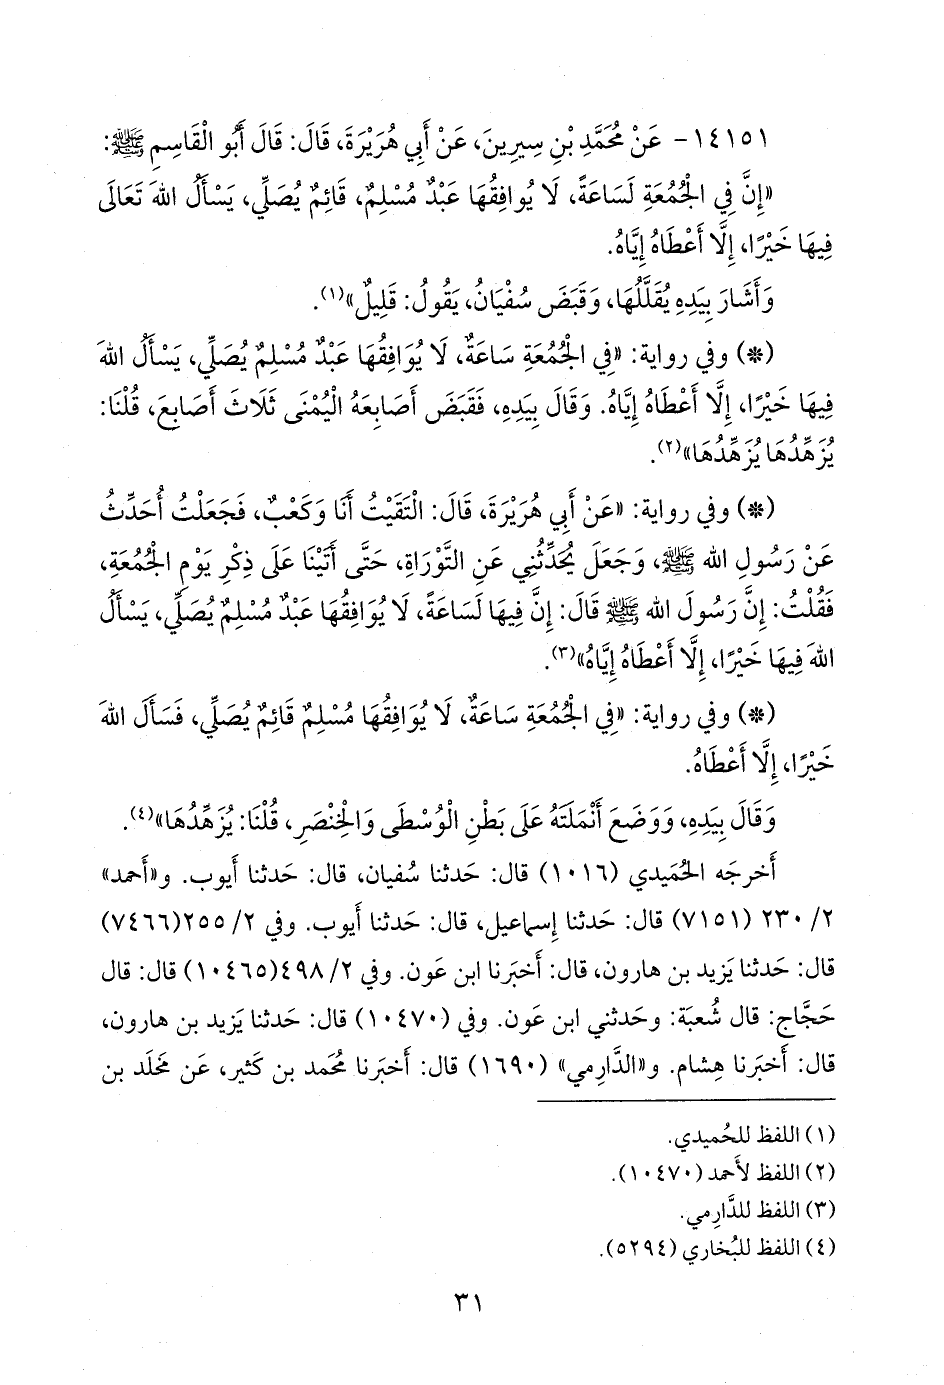 ١٤١٥١- عَنْ مُحَمَّدِ بْنِ سِيرِينَ، عَنْ أَبِي هُرَيْرَةَ، قَالَ: قَالَ أَبُو الْقَاسِمِ ﷺ:
«إِنَّ فِي الْجُمُعَةِ لَسَاعَةً، لَا يُوافِقُهَا عَبْدٌ مُسْلِمٌ، قَائِمٌ يُصَلِّي، يَسْأَلُ اللهَ تَعَالَى
فِيهَا خَيْرًا، إِلَّا أَعْطَاهُ إِيَّاهُ.
وَأَشَارَ بِيَدِهِ يُقَلِّلُهَا، وَقَبَضَ سُفْيَانُ، يَقُولُ: قَلِيلٌ»(١).
(*) وفي رواية: «فِي الْجُمُعَةِ سَاعَةٌ، لَا يُوَافِقُهَا عَبْدٌ مُسْلِمٌ يُصَلِّي، يَسْأَلُ اللهَ
فِيهَا خَيْرًا، إِلَّا أَعْطَاهُ إِيَّاهُ. وَقَالَ بِيَدِهِ، فَقَبَضَ أَصَابِعَهُ الْيُمْنَى ثَلَاثَ أَصَابِعَ، قُلْنَا:
يُزَهِّدُهَا يُزَهِّدُهَا»(٢).
(*) وفي رواية: «عَنْ أَبِي هُرَيْرَةَ، قَالَ: الْتَقَيْتُ أَنَا وَكَعْبٌ، فَجَعَلْتُ أُحَدِّثُ
عَنْ رَسُولِ الله ﷺ، وَجَعَلَ يُحَدِّثُنِي عَنِ التَّوْرَاةِ، حَتَّى أَتَيْنَا عَلَى ذِكْرِ يَوْمِ الْجُمُعَةِ،
فَقُلْتُ: إِنَّ رَسُولَ الله ﷺ قَالَ: إِنَّ فِيهَا لَسَاعَةً، لَا يُوَافِقُهَا عَبْدٌ مُسْلِمٌ يُصَلِّي، يَسْأَلُ
اللهَ فِيهَا خَيْرًا، إِلَّا أَعْطَاهُ إِيَّاهُ»(٣).
(*) وفي رواية: «فِي الْجُمُعَةِ سَاعَةٌ، لَا يُوَافِقُهَا مُسْلِمٌ قَائِمٌ يُصَلِّي، فَسَأَلَ اللهَ
خَيْرًا، إِلَّا أَعْطَاهُ.
وَقَالَ بِيَدِهِ، وَوَضَعَ أَنْمَلَتَهُ عَلَى بَطْنِ الْوُسْطَى وَالْخِنْصَرِ، قُلْنَا: يُزَهِّدُهَا»(٤).
أَخرجَه الحُمَيدي (١٠١٦) قال: حَدثنا سُفيان، قال: حَدثنا أَيوب. و«أَحمد»
٢/ ٢٣٠ (٧١٥١) قال: حَدثنا إِسماعيل، قال: حَدثنا أَيوب. وفي ٢/ ٢٥٥(٧٤٦٦)
قال: حَدثنا يَزيد بن هارون، قال: أَخبَرنا ابن عَون. وفي ٢/ ٤٩٨(١٠٤٦٥) قال: قال
حَجَّاج: قال شُعبَة: وحَدثني ابن عَون. وفي (١٠٤٧٠) قال: حَدثنا يَزيد بن هارون،
قال: أَخبَرنا هِشام. و«الدَّارِمي» (١٦٩٠) قال: أَخبَرنا مُحمد بن كَثير، عَن مَخلَد بن
(١) اللفظ للحُميدي.
(٢) اللفظ لأَحمد (١٠٤٧٠).
(٣) اللفظ للدَّارِمي.
(٤) اللفظ للبُخاري (٥٢٩٤).
٣١